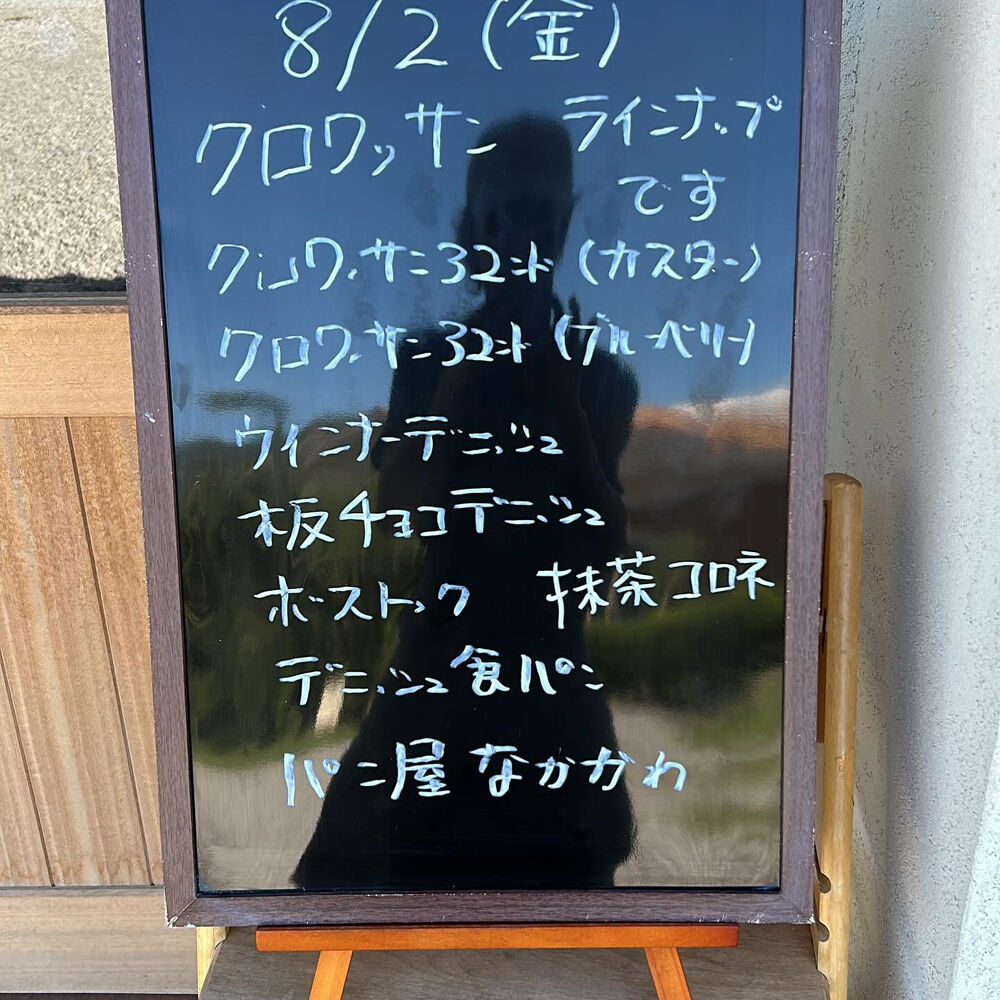 8/2(金)
クロワッサン ラインナップ
です
クロワッサン (カスター)
クロワッサン (ブルーベリー)
ウィンナーデニッシュ
板チョコデニッシュ
ボストック 抹茶コロネ
デニッシュ食パン
パン屋なかがわ